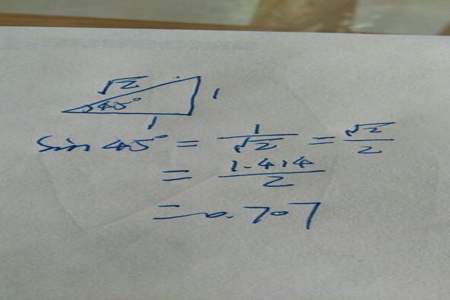 √2
45°
1
1
Sin 45° = 1/√2 = √2/2
= 1.414/2
= 0.707